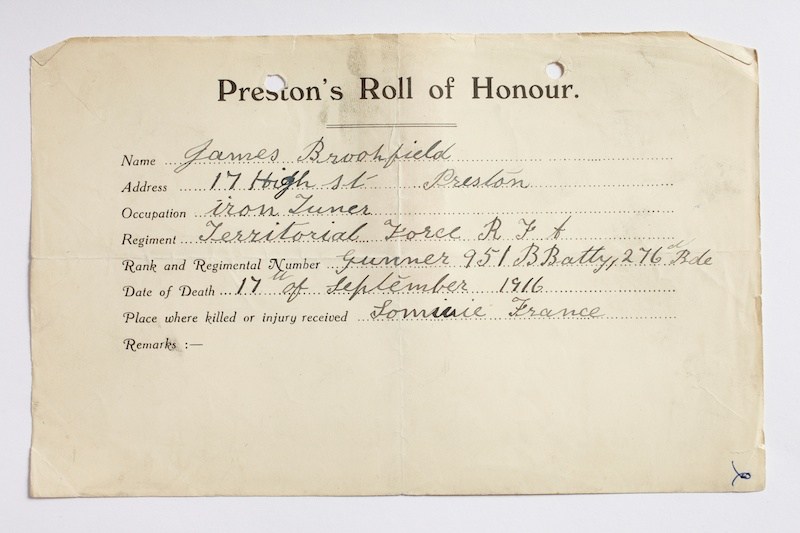 Preston's Roll of Honour.
Name James Brookfield
Address 17 High St Preston
Occupation iron Tuner
Regiment Territorial Force R F A
Rank and Regimental Number Gunner 951 B Batty, 276 Bde
Date of Death 17th of September 1916
Place where killed or injury received France
Remarks :—